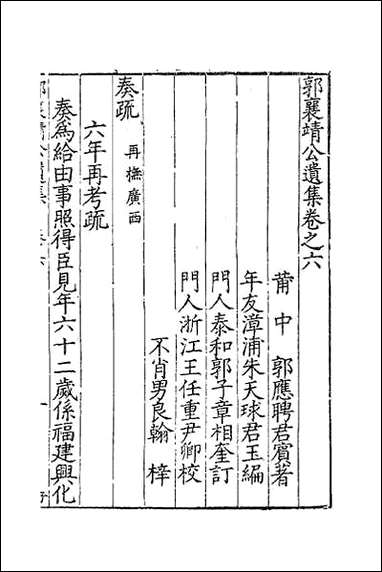 郭襄靖公遺集卷之六
莆中 郭應聘君賓著
年友漳浦朱天球君玉編
門人泰和郭子章相奎訂
門人浙江王任重尹卿校
不肖男良翰 梓
奏疏 再撫廣西
六年再考疏
奏為給由事照得臣見年六十二歲係福建興化